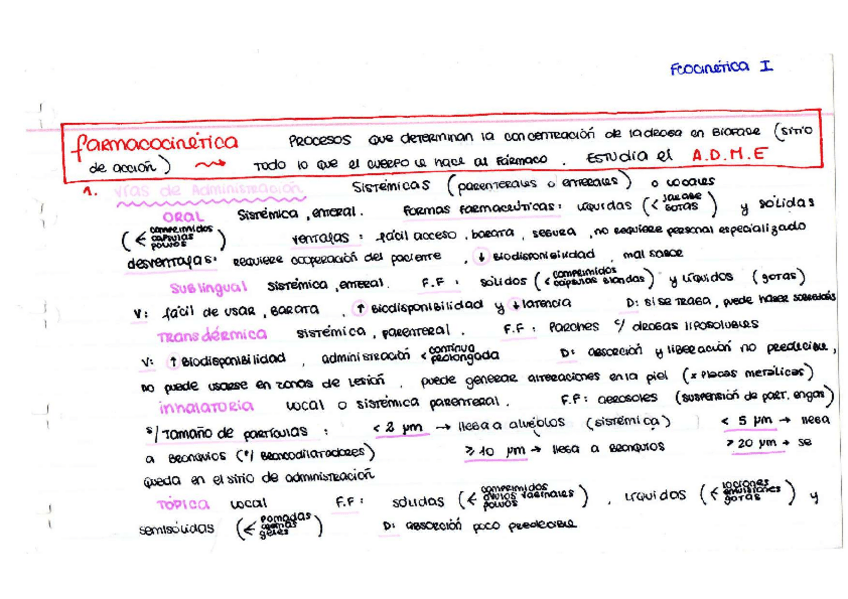 Fcocinética I
farmacocinética PROCESOS que determinan la concentración de la droga en BIOFASE (SITIO
de acción) → TODO lo que el cuerpo le hace al fármaco. ESTUDIA el A.D.M.E
1. Vías de Administración SISTÉMICAS (parenterales o enterales) o locales
ORAL Sistémica, enteral. Formas farmacéuticas: líquidas (< jarabe gotas) y sólidas
(< comprimidos cápsulas polvos) ventajas: fácil acceso, barata, segura, no requiere personal especializado
desventajas: requiere cooperación del paciente, ↓ Biodisponibilidad, mal sabor
Sublingual sistémica, enteral. F.F: sólidos (< comprimidos cápsulas blandas) y líquidos (gotas)
V: fácil de usar, barata, ↑ Biodisponibilidad y ↓ latencia D: si se traga, puede haber sobredosis
Transdérmica sistémica, parenteral. F.F: Parches c/ drogas liposolubles
V: ↑ Biodisponibilidad, administración < continua prolongada D: absorción y liberación no predecible,
no puede usarse en zonas de lesión, puede generar alteraciones en la piel (x placas metálicas)
inhalatoria local o sistémica parenteral. F.F: aerosoles (suspensión de part. en gas)
s/ Tamaño de partículas: < 2 µm → llega a alvéolos (sistémica) < 5 µm → llega
a bronquios (p/ broncodilatadores) ≥ 10 µm → llega a bronquios > 20 µm → se
queda en el sitio de administración
TÓPICA local F.F: sólidas (< comprimidos óvulos vaginales polvos), líquidos (< lociones emulsiones gotas) y
semisólidas (< pomadas cremas geles) D: absorción poco predecible